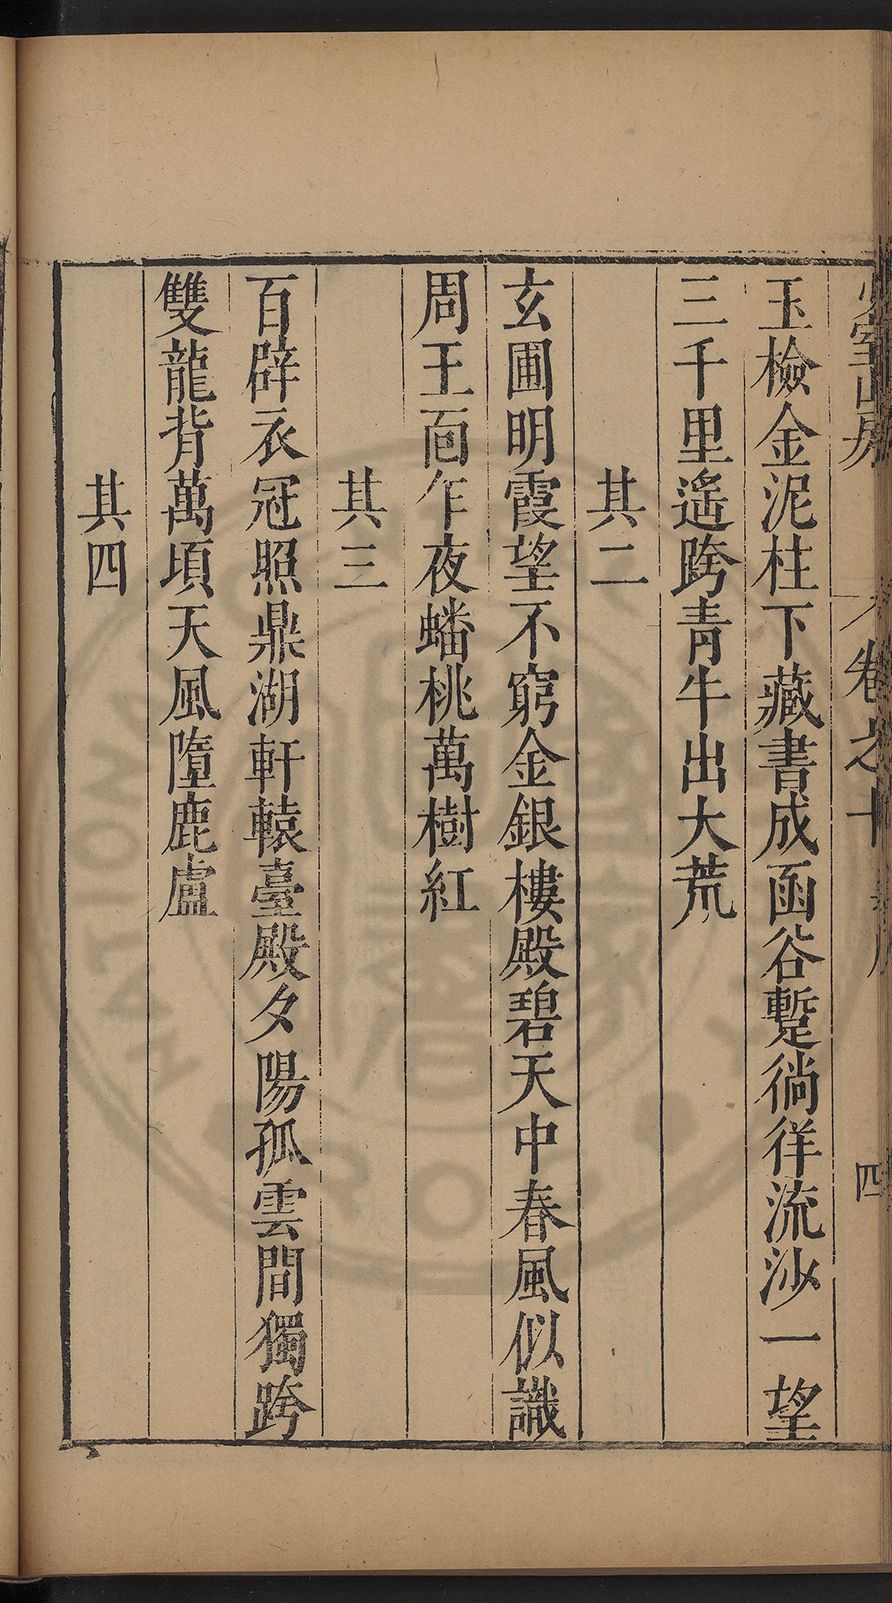 玉檢金泥柱下藏書成函谷蹔徜徉流沙一望
三千里遙跨青牛出大荒
其二
玄圃明霞望不窮金銀樓殿碧天中春風似識
周王面乍夜蟠桃萬樹紅
其三
百辟衣冠照鼎湖軒轅臺殿夕陽孤雲間獨跨
雙龍背萬頃天風墮鹿盧
其四
室山房
卷之十
四